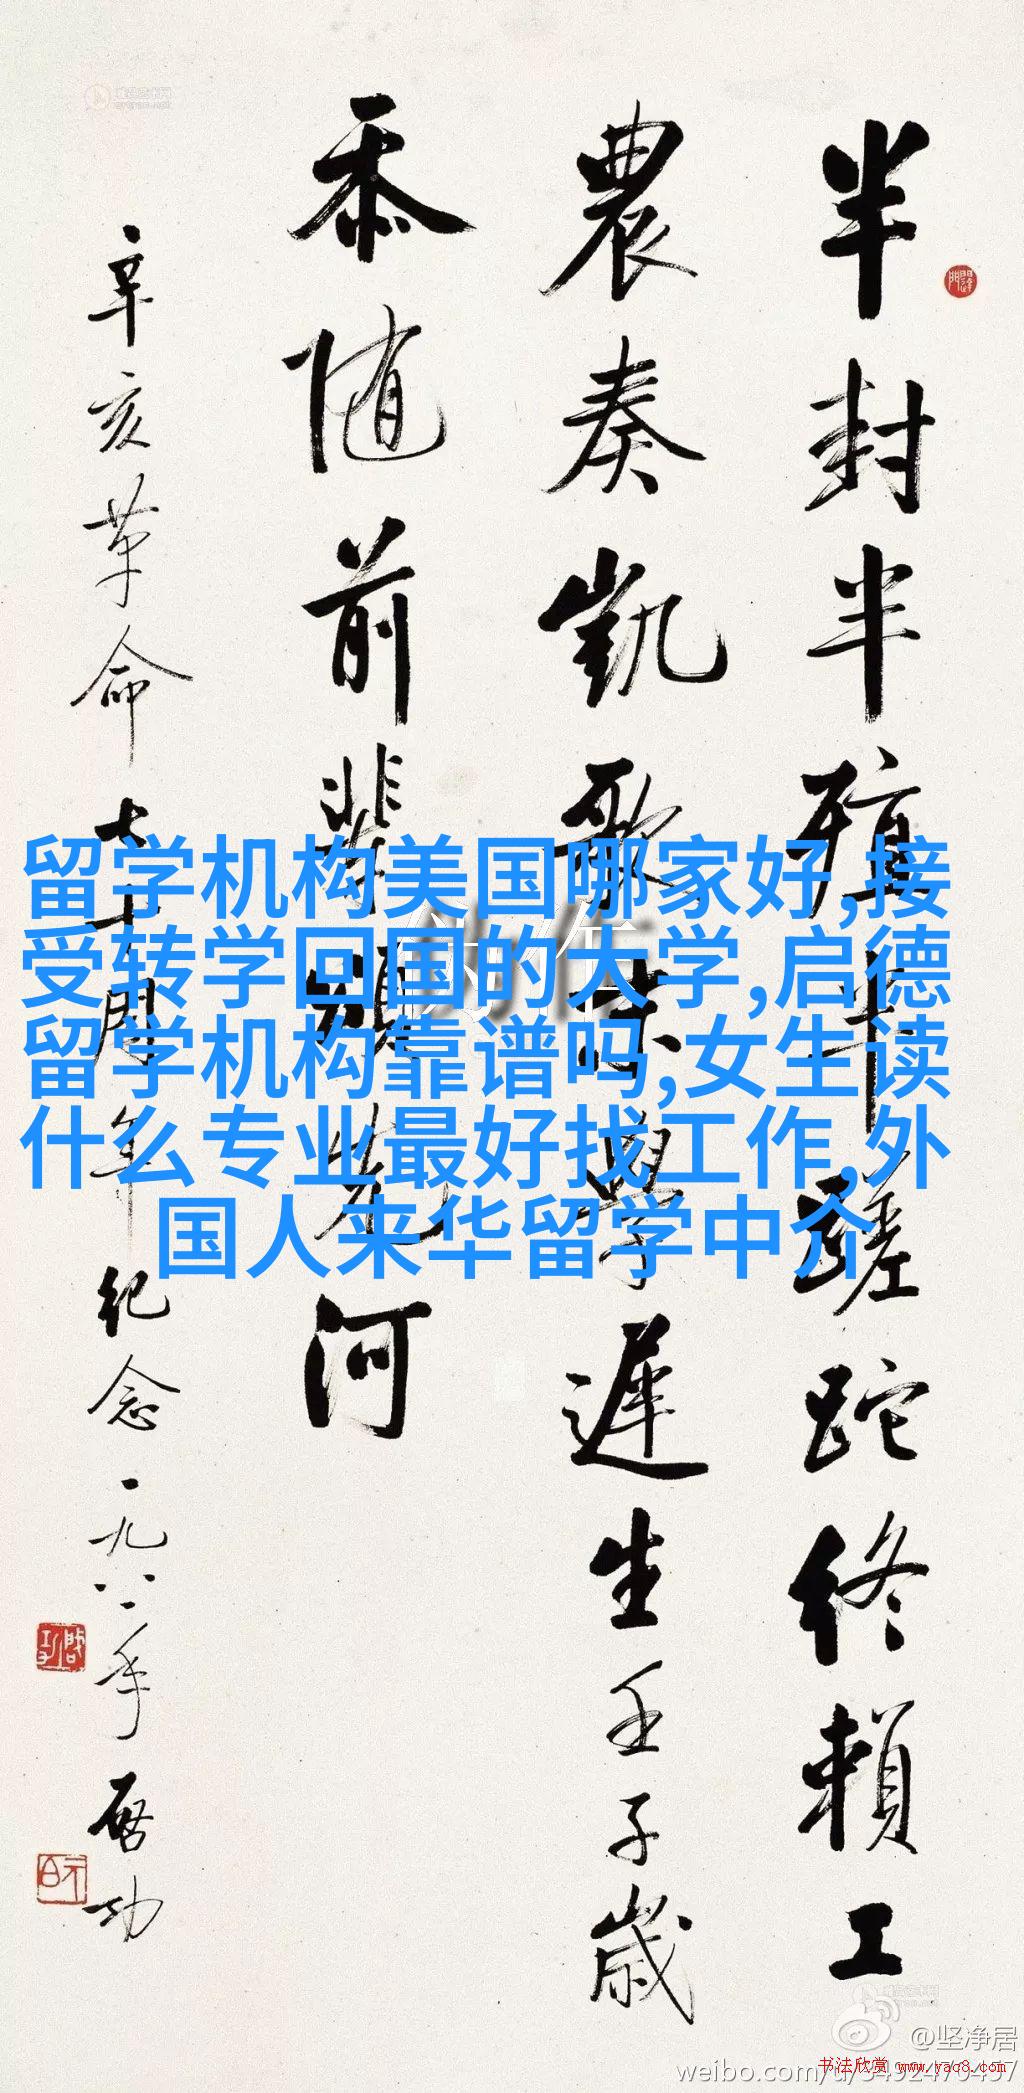 半封半殖半蹉跎终賴工
農奏凱歌末學遲生壬子歲
忝随前輩頌先河
辛亥革命七十周年纪念一九八一年啟功
留学机构美国哪家好,接
受转学回国的大学,启德
留学机构靠谱吗,女生读
什么专业最好找工作,外
国人来华留学中介
@坚净居
weibo.com/u/3492470457
书法欣赏 www.yac8.com